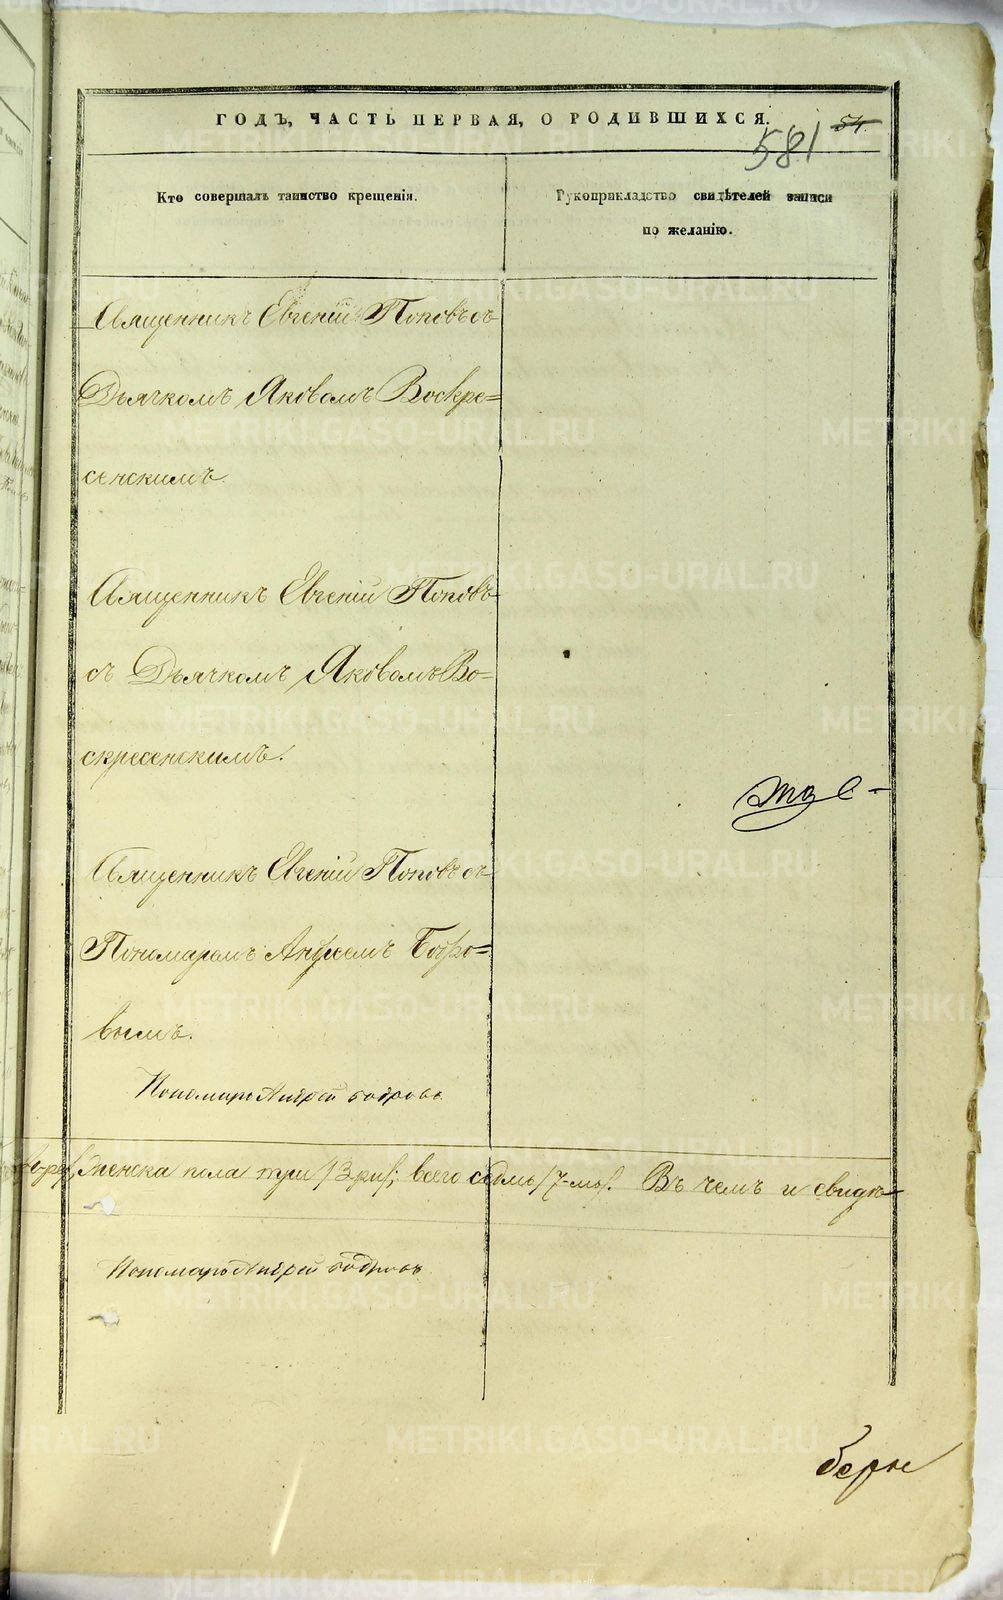 ГОДЪ, ЧАСТЬ ПЕРВАЯ, О РОДИВШИХСЯ.
581 54.
Кто совершалъ таинство крещенія.
Рукоприкладство свидѣтелей записи
по желанію.
Священникъ Евгеній Поповъ съ
Дьячкомъ Яковомъ Воскре=
сенскимъ.
Священникъ Евгеній Поповъ
съ Дьячкомъ Яковомъ Во=
скресенскимъ.
Священникъ Евгеній Поповъ съ
Пономаремъ Андреемъ Бобро=
вымъ.
Пономарь Андрей Бобровъ
женска пола три /3-ри/; всего седмь /7-мь/. Въ чемъ и свидѣ
Пономарь Андрей Бобровъ
METRIKI.GASO-URAL.RU